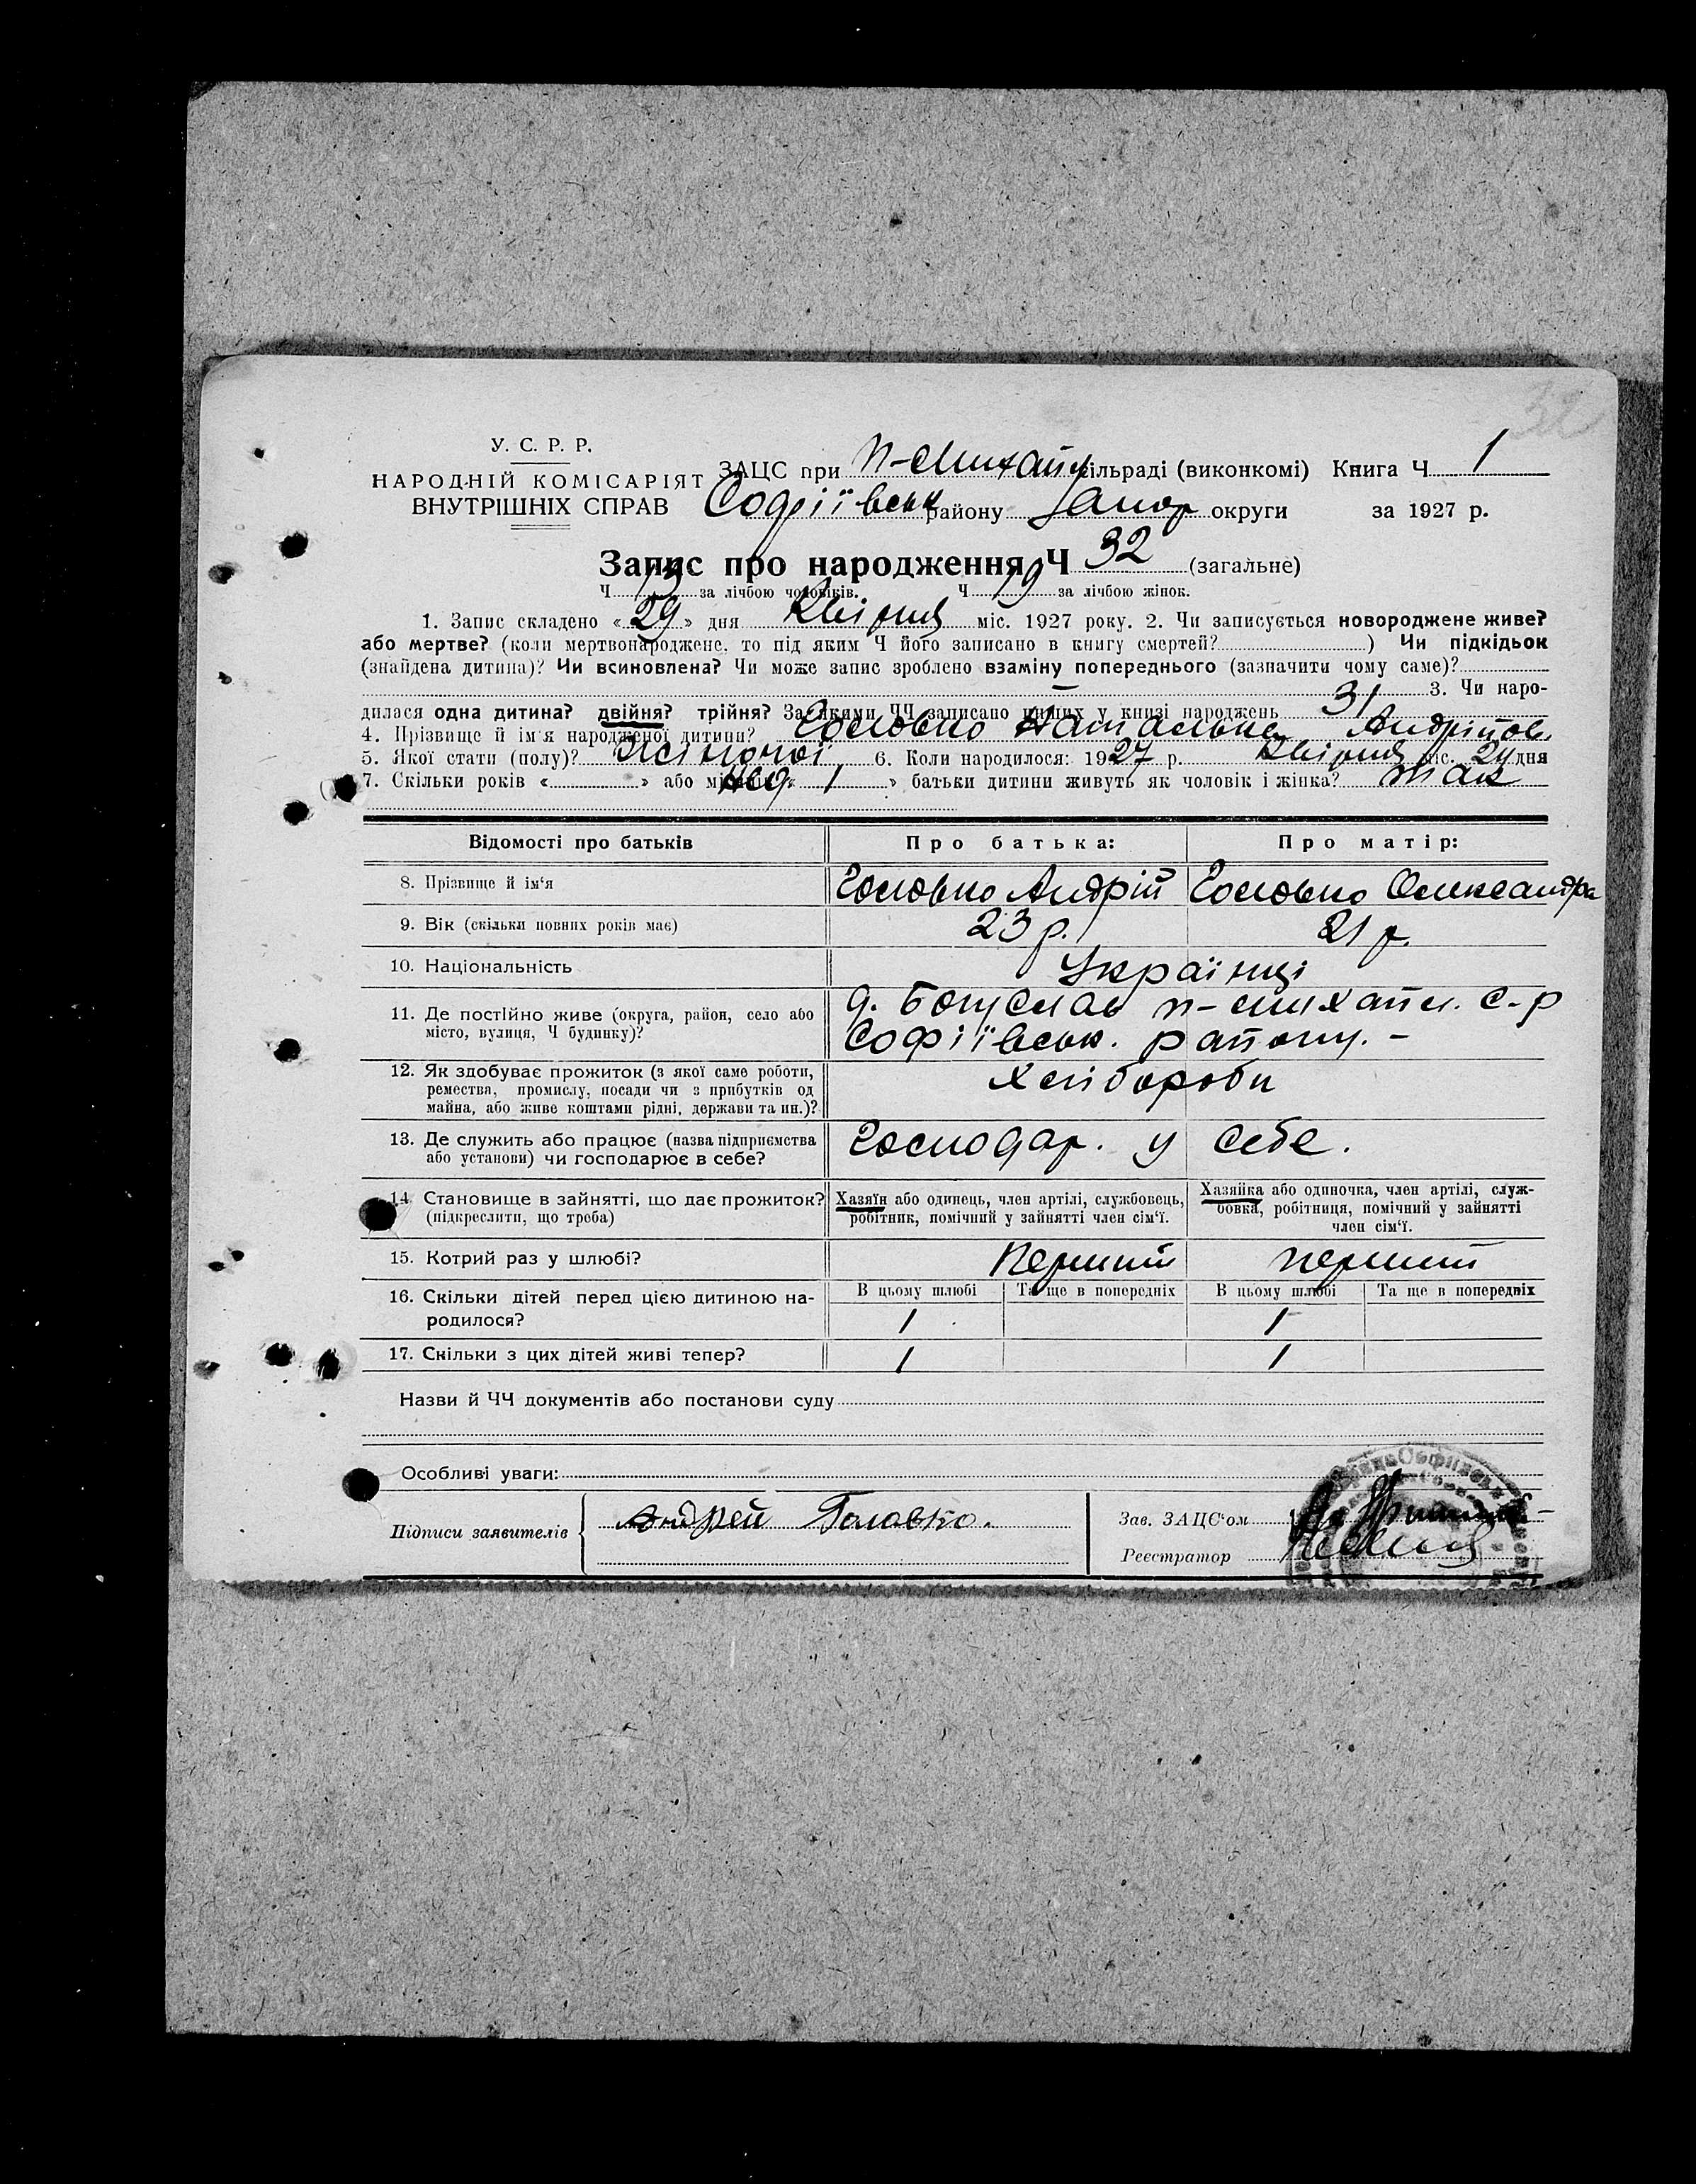 32
У. С. Р. Р.
НАРОДНІЙ КОМІСАРІЯТ
ВНУТРІШНІХ СПРАВ
ЗАЦС при П-Михайл сільраді (виконкомі) Книга Ч 1
Софіївськ району Запор округи за 1927 р.
Запис про народження Ч 32 (загальне)
Ч 13 за лічбою чоловіків. Ч 19 за лічбою жінок.
1. Запис складено «29» дня Квітня міс. 1927 року. 2. Чи записується новороджене живе?
або мертве? (коли мертвонароджене, то під яким Ч його записано в книгу смертей?) Чи підкідьок
(знайдена дитина)? Чи всиновлена? Чи може запис зроблено взаміну попереднього (зазначити чому саме)?
3. Чи наро-
дилася одна дитина? двійня? трійня? За якими ЧЧ записано инших у книзі народжень 31
4. Прізвище й ім'я народженої дитини? Головко Наталька Андрійов.
5. Якої стати (полу)? Жіночої 6. Коли народилося: 1927 р. Квітня міс. 24 дня
7. Скільки років « » або місяців « 1 » батьки дитини живуть як чоловік і жінка? так
Відомості про батьків Про батька: Про матір:
8. Прізвище й ім'я Головко Андрій Головко Олександра
9. Вік (скільки повних років має) 23 р. 21 р.
10. Національність Українці
11. Де постійно живе (округа, район, село або
місто, вулиця, Ч будинку)?
д. Богуслав п-михайл. с-р
Софіївськ. району. -
12. Як здобуває прожиток (з якої саме роботи,
ремества, промислу, посади чи з прибутків од
майна, або живе коштами рідні, держави та ин.)?
Хлібороби
13. Де служить або працює (назва підприємства
або установи) чи господарює в себе?
Господар. у себе.
14. Становище в зайнятті, що дає прожиток?
(підкреслити, що треба)
Хазяїн або одинець, член артілі, службовець,
робітник, помічний у зайнятті член сім'ї.
Хазяйка або одиночка, член артілі, служ-
бовка, робітниця, помічний у зайнятті
член сім'ї.
15. Котрий раз у шлюбі? Перший перший
16. Скільки дітей перед цією дитиною на-
родилося?
В цьому шлюбі Та ще в попередніх В цьому шлюбі Та ще в попередніх
1 1
17. Скільки з цих дітей живі тепер? 1 1
Назви й ЧЧ документів або постанови суду
Особливі уваги:
Підписи заявителів Андрей Головко.
Зав. ЗАЦС'ом
Реєстратор